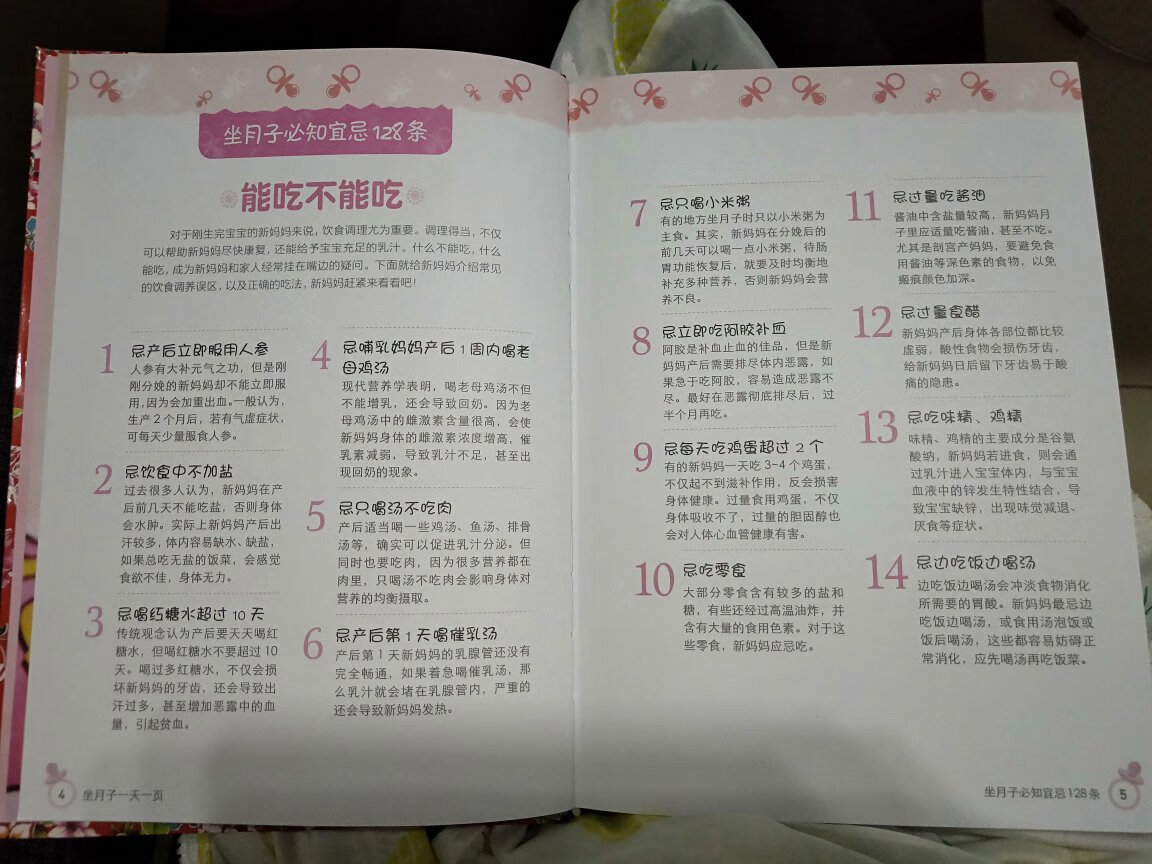 坐月子必知宜忌128条
能吃不能吃
对于刚生完宝宝的新妈妈来说，饮食调理尤为重要。调理得当，不仅
可以帮助新妈妈尽快康复，还能给予宝宝充足的乳汁。什么不能吃，什么
能吃，成为新妈妈和家人经常挂在嘴边的疑问。下面就给新妈妈介绍常见
的饮食调养误区，以及正确的吃法，新妈妈赶紧来看看吧！
1 忌产后立即服用人参
人参有大补元气之功，但是刚
刚分娩的新妈妈却不能立即服
用，因为会加重出血。一般认为，
生产2个月后，若有气虚症状，
可每天少量服食人参。
2 忌饮食中不加盐
过去很多人认为，新妈妈在产
后前几天不能吃盐，否则身体
会水肿。实际上新妈妈产后出
汗较多，体内容易缺水、缺盐，
如果总吃无盐的饭菜，会感觉
食欲不佳，身体无力。
3 忌喝红糖水超过10天
传统观念认为产后要天天喝红
糖水，但喝红糖水不要超过10
天。喝过多红糖水，不仅会损
坏新妈妈的牙齿，还会导致出
汗过多，甚至增加恶露中的血
量，引起贫血。
4 忌哺乳妈妈产后1周内喝老
母鸡汤
现代营养学表明，喝老母鸡汤不但
不能增乳，还会导致回奶。因为老
母鸡汤中的雌激素含量很高，会使
新妈妈身体的雌激素浓度增高，催
乳素减弱，导致乳汁不足，甚至出
现回奶的现象。
5 忌只喝汤不吃肉
产后适当喝一些鸡汤、鱼汤、排骨
汤等，确实可以促进乳汁分泌。但
同时也要吃肉，因为很多营养都在
肉里，只喝汤不吃肉会影响身体对
营养的均衡摄取。
6 忌产后第1天喝催乳汤
产后第1天新妈妈的乳腺管还没有
完全畅通，如果着急喝催乳汤，那
么乳汁就会堵在乳腺管内，严重的
还会导致新妈妈发热。
4 坐月子一天一页
7 忌只喝小米粥
有的地方坐月子时只以小米粥为
主食。其实，新妈妈在分娩后的
前几天可以喝一点小米粥，待肠
胃功能恢复后，就要及时均衡地
补充多种营养，否则新妈妈会营
养不良。
8 忌立即吃阿胶补血
阿胶是补血止血的佳品，但是新
妈妈产后需要排尽体内恶露，如
果急于吃阿胶，容易造成恶露不
尽。最好在恶露彻底排尽后，过
半个月再吃。
9 忌每天吃鸡蛋超过2个
有的新妈妈一天吃3~4个鸡蛋，
不仅起不到滋补作用，反会损害
身体健康。过量食用鸡蛋，不仅
身体吸收不了，过量的胆固醇也
会对人体心血管健康有害。
10 忌吃零食
大部分零食含有较多的盐和
糖，有些还经过高温油炸，并
含有大量的食用色素。对于这
些零食，新妈妈应忌吃。
11 忌过量吃酱油
酱油中含盐量较高，新妈妈月
子里应适量吃酱油，甚至不吃。
尤其是剖宫产妈妈，要避免食
用酱油等深色素的食物，以免
瘢痕颜色加深。
12 忌过量食醋
新妈妈产后身体各部位都比较
虚弱，酸性食物会损伤牙齿，
给新妈妈日后留下牙齿易于酸
痛的隐患。
13 忌吃味精、鸡精
味精、鸡精的主要成分是谷氨
酸钠，新妈妈若进食，则会通
过乳汁进入宝宝体内，与宝宝
血液中的锌发生特性结合，导
致宝宝缺锌，出现味觉减退、
厌食等症状。
14 忌边吃饭边喝汤
边吃饭边喝汤会冲淡食物消化
所需要的胃酸。新妈妈最忌边
吃饭边喝汤，或食用汤泡饭或
饭后喝汤，这些都容易妨碍正
常消化，应先喝汤再吃饭菜。
坐月子必知宜忌128条 5